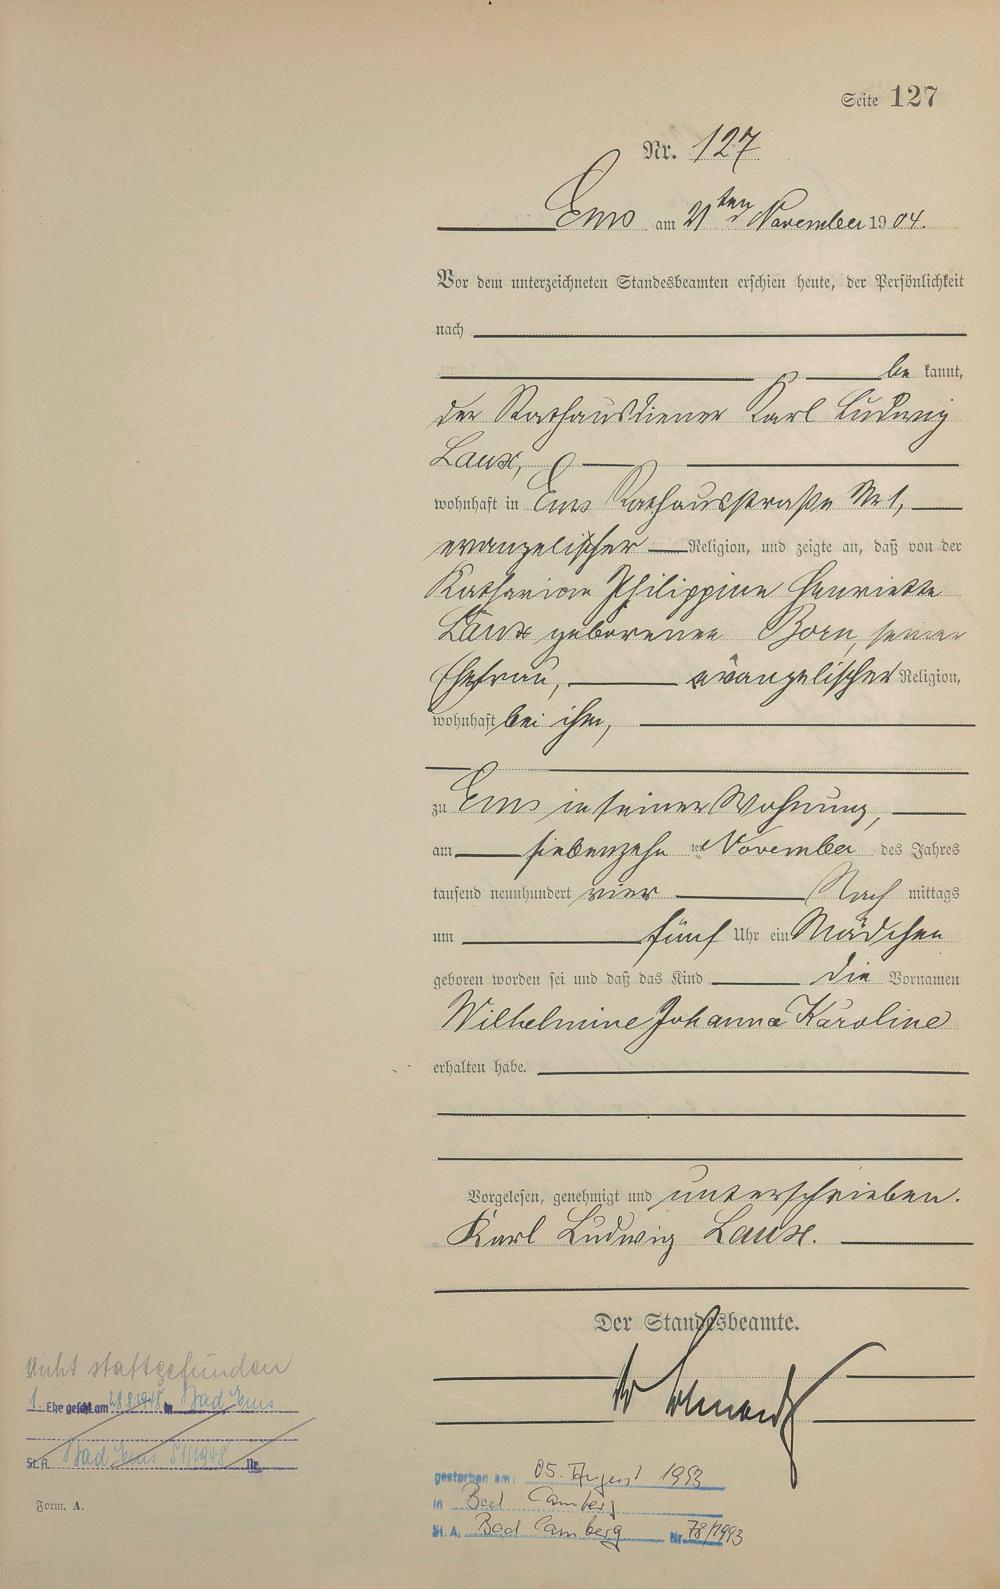 Seite 127
Nr. 127
Ems am 21ten November 1904.
Vor dem unterzeichneten Standesbeamten erschien heute, der Persönlichkeit
nach
be kannt,
der Rathausdiener Karl Ludwig
Laux,
wohnhaft in Ems Rathausstraße Nr 1,
evangelischer Religion, und zeigte an, daß von der
Katharine Philippine Henriette
Laux geborenen Born, seiner
Ehefrau, evangelischer Religion,
wohnhaft bei ihm,
zu Ems in seiner Wohnung,
am siebenzehn ten November des Jahres
tausend neunhundert vier Nach mittags
um fünf Uhr ein Mädchen
geboren worden sei und daß das Kind die Vornamen
Wilhelmine Johanna Karoline
erhalten habe.
Vorgelesen, genehmigt und unterschrieben.
Karl Ludwig Laux.
Der Standesbeamte.
nicht stattgefunden
1. Ehe geschl. am 28.8.1948 in Bad Ems
St. A. Bad Ems 51/1948 Nr.
gestorben am: 05. August 1993
in Bad Camberg
St. A. Bad Camberg Nr. 78/1993
Form. A.